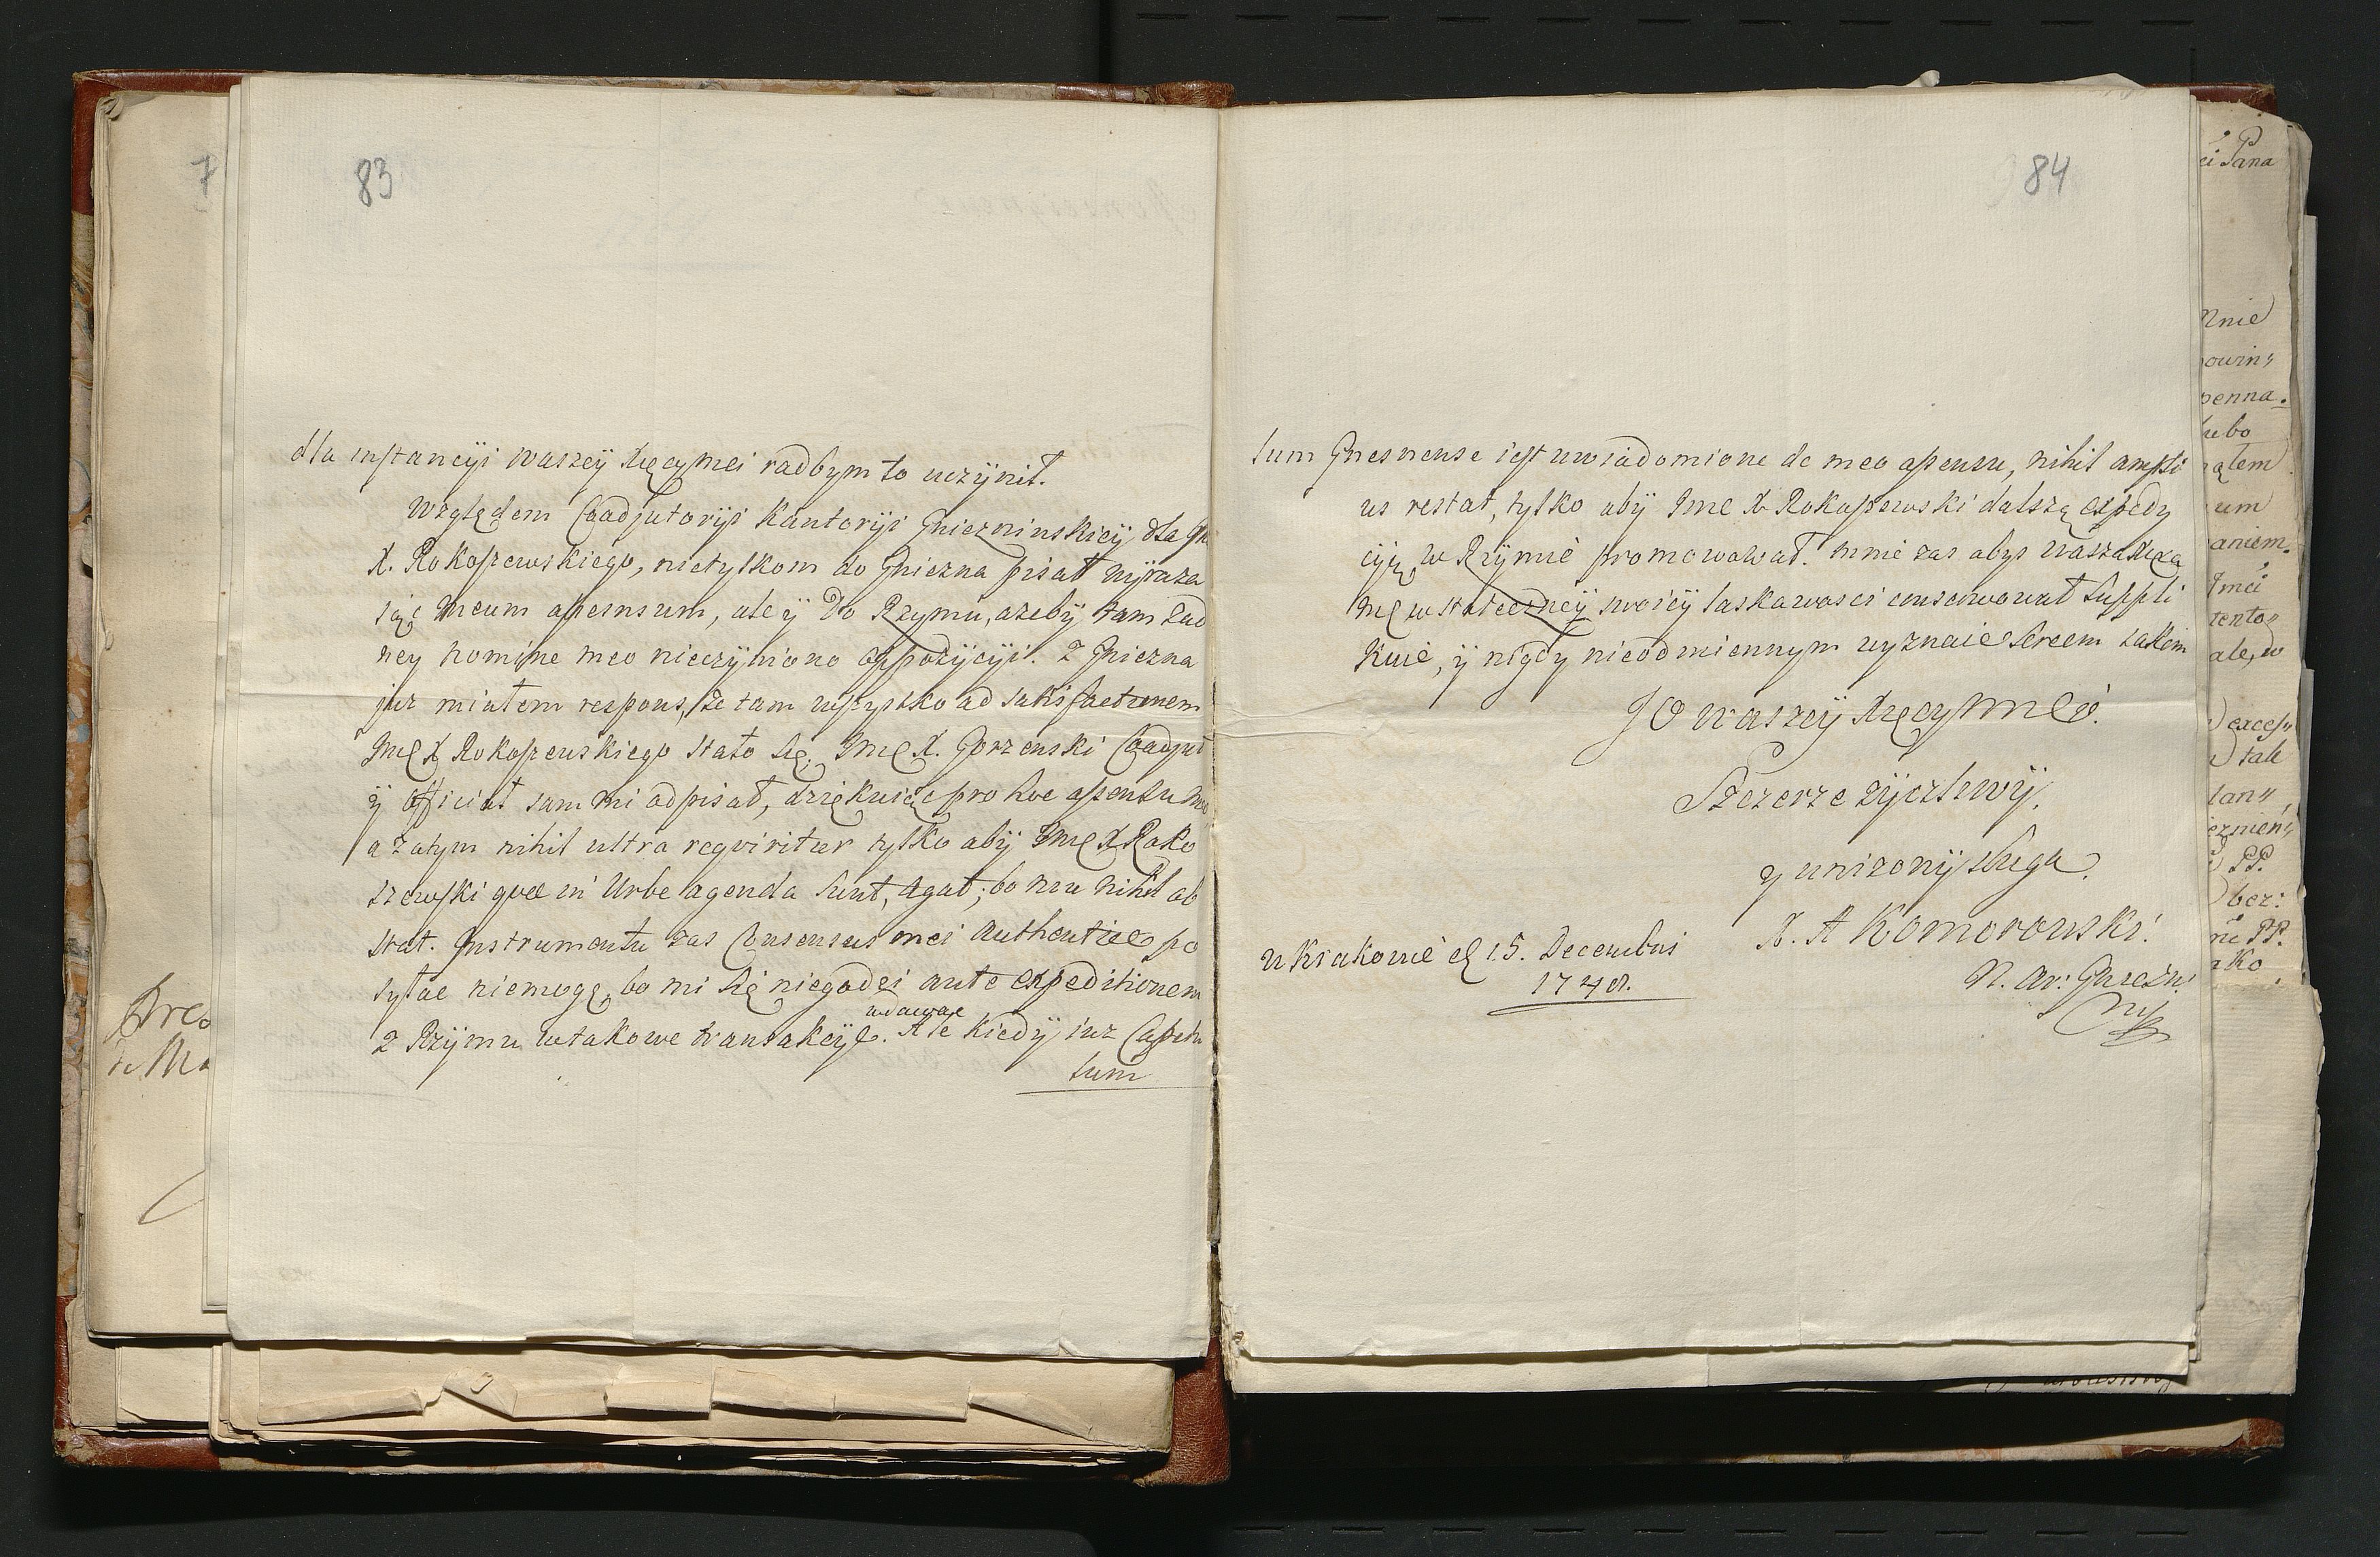 83
dla instancÿi waszeÿ Xięcymci radbym to uczÿnił.
Względem Coadjutorÿi Kantorÿi Gniezninskieÿ dla Jm
X. Rokoszewskiego, nietylkom do Gniezna pisał wÿraza
iąc meum assensum, ale ÿ do Rzymu, azebÿ tam zad
ney nomine meo nieczÿniono oppozÿcÿi. Z Gniezna
juz miałem respons, ze tam wszystko ad satisfactionem
Jme X Rokoszewskiego stało się. Jme X. Gorzenski Coadjut
ÿ Officiał sam mi odpisał, dziękuiąc pro hoc assensu meo
a zatym nihil ultra reqviritur tylko abÿ Jme X Roko
szewski qvae in Urbe agenda sunt, agat; bo mu nihil ob
stat. Instrumentu zas Consensus mei authentice po
sylac niemogę, bo mi się niegodzi ante expeditionem
z Rzÿmu wtakowe tranzakcÿe wdawac. Ale kiedÿ iuz Capitu
lum
84
lum Gnesnense iest uwiadomione de meo assensu, nihil ampli
us restat, tylko abÿ Jme X Rokoszewski dalszą expedy
cÿią w Rzÿmie promowował. Mnie zas abys Wasza Xcca
Mc w stateczneÿ swoieÿ laskawosci conserwował suppli
kuie, ÿ nigdy nieodmiennym wyznaie sercem zakem
JO Waszeÿ Xięcymci
Szczerze zÿczliwÿ,
y unizonÿ sluga
A. Komorowski
w Krakowie d 15. Decembris
1748.
N. Ar: Gniezn: